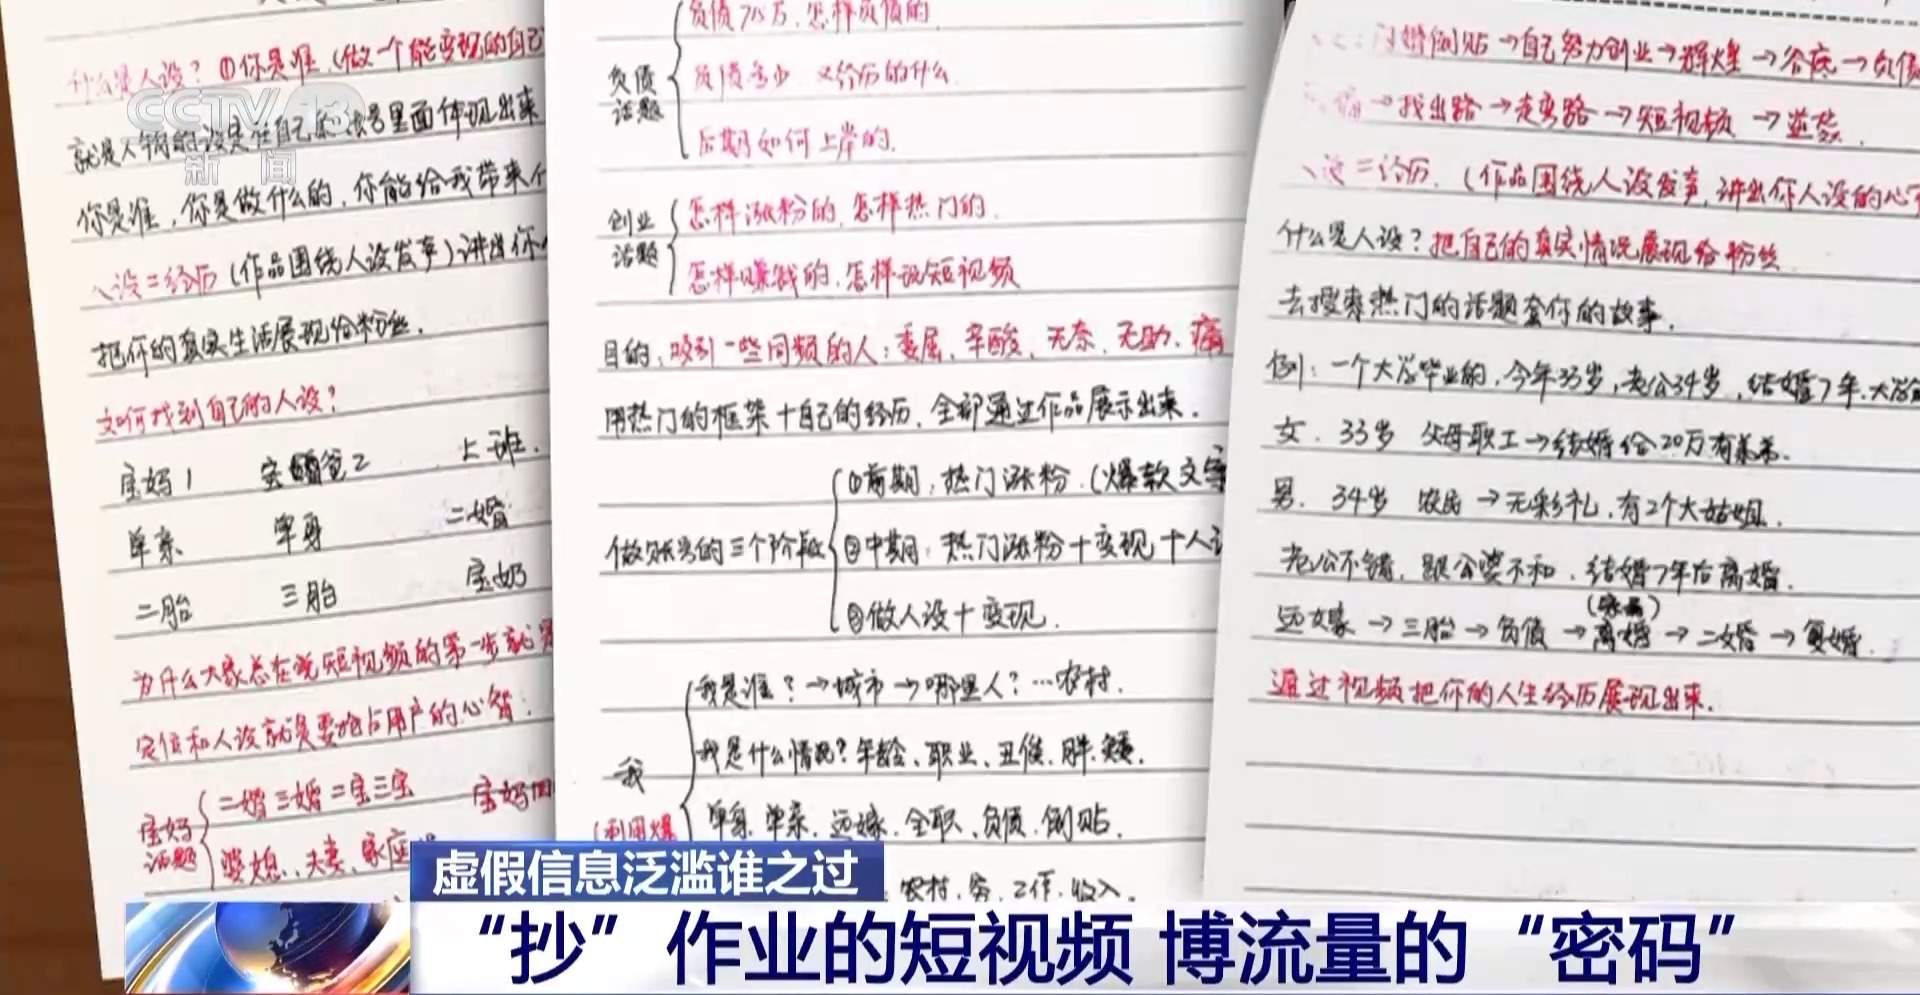 什么是人设？①你是谁（做一个能变现的自己
就是人物的设定在自己的账号里面体现出来
你是谁，你是做什么的，你能给我带来什
人设=经历（作品围绕人设发声）讲出你
把你的真实生活展现给粉丝.
如何找到自己的人设？
宝妈1 宝爸2 上班.
单亲 单身 二婚
二胎 三胎 宝奶
为什么大家总在说短视频的第一步就是
定位和人设就是要抢占用户的心智：
宝妈话题
二婚三婚二宝三宝 宝妈
婆媳、夫妻、家庭
负债话题
负债715万，怎样负债的
负债多少 又经历的什么
后期如何上岸的.
创业话题
怎样涨粉的，怎样热门的.
怎样赚钱的，怎样说短视频
目的：吸引一些同频的人：委屈、辛酸、无奈、无助、痛
用热门的框架+自己的经历，全部通过作品展示出来.
做账号的三个阶段
①前期：热门涨粉.（爆款文案
②中期：热门涨粉+变现+人设
③做人设+变现.
我
（利用爆
我是谁？→城市→哪里人？…农村.
我是什么情况？年龄、职业、丑俊、胖、矮.
单身、单亲、远嫁、全职、负债、倒贴.
农村、穷、工作、收入.
闪婚倒贴→自己努力创业→辉煌→谷底→负债
→找出路→走弯路→短视频→逆袭.
人设=经历.（作品围绕人设发声，讲出你人设的心
什么是人设？把自己的真实情况展现给粉丝
去搜索热门的话题套你的故事.
例：一个大学毕业的，今年33岁，老公34岁，结婚7年、大学
女.33岁 父母职工→结婚给20万有弟弟.
男.34岁 农民→无彩礼，有2个大姑姐.
老公不错，跟公婆不和.结婚7年后离婚.
远嫁→三胎→负债→离婚→二婚→复婚.
通过视频把你的人生经历展现出来.
CCTV 13
新闻
虚假信息泛滥谁之过
“抄”作业的短视频 博流量的“密码”